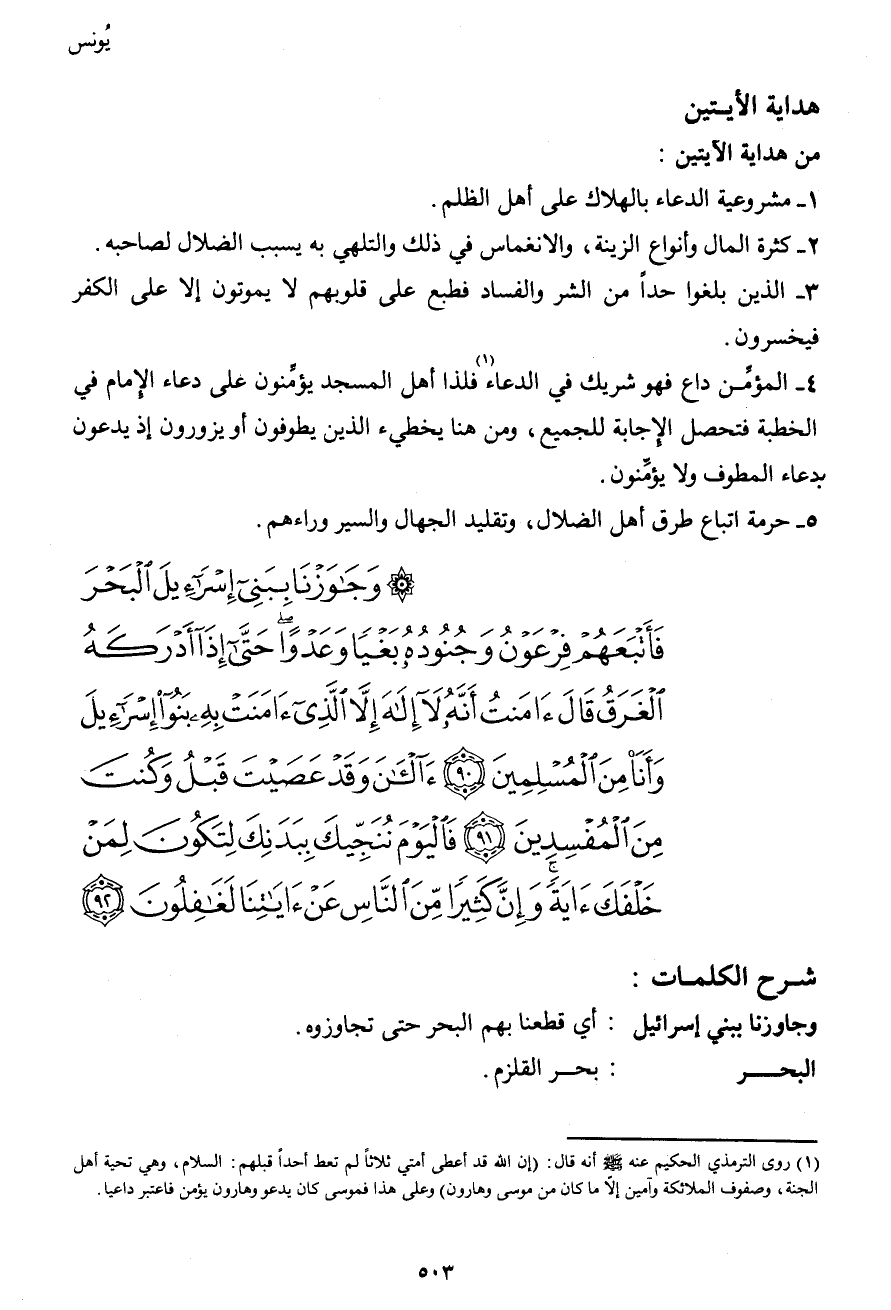 يُونس
هداية الأيـتين
من هداية الآيتين :
١ـ مشروعية الدعاء بالهلاك على أهل الظلم .
٢ـ كثرة المال وأنواع الزينة ، والانغماس في ذلك والتلهي به يسبب الضلال لصاحبه .
٣ـ الذين بلغوا حداً من الشر والفساد فطبع على قلوبهم لا يموتون إلا على الكفر
فيخسرون .
٤ـ المؤمِّـن داع فهو شريك في الدعاء(١) فلذا أهل المسجد يؤمِّنون على دعاء الإِمام في
الخطبة فتحصل الإِجابة للجميع ، ومن هنا يخطيء الذين يطوفون أو يزورون إذ يدعون
بدعاء المطوف ولا يؤمِّنون .
٥ـ حرمة اتباع طرق أهل الضلال ، وتقليد الجهال والسير وراءهم .
۞ وَجَٰوَزْنَا بِبَنِىٓ إِسْرَٰٓءِيلَ ٱلْبَحْرَ
فَأَتْبَعَهُمْ فِرْعَوْنُ وَجُنُودُهُۥ بَغْيًا وَعَدْوًا ۖ حَتَّىٰٓ إِذَآ أَدْرَكَهُ
ٱلْغَرَقُ قَالَ ءَامَنتُ أَنَّهُۥ لَآ إِلَٰهَ إِلَّا ٱلَّذِىٓ ءَامَنَتْ بِهِۦ بَنُوٓا۟ إِسْرَٰٓءِيلَ
وَأَنَا۠ مِنَ ٱلْمُسْلِمِينَ ٩٠ ءَآلْـَٰٔنَ وَقَدْ عَصَيْتَ قَبْلُ وَكُنتَ
مِنَ ٱلْمُفْسِدِينَ ٩١ فَٱلْيَوْمَ نُنَجِّيكَ بِبَدَنِكَ لِتَكُونَ لِمَنْ
خَلْفَكَ ءَايَةً ۚ وَإِنَّ كَثِيرًا مِّنَ ٱلنَّاسِ عَنْ ءَايَٰتِنَا لَغَٰفِلُونَ ٩٢
شـرح الكلمـات :
وجاوزنا ببني إسرائيل : أي قطعنا بهم البحر حتى تجاوزوه .
البحـــر : بحـر القلزم .
(١) روى الترمذي الحكيم عنه ﷺ أنه قال : (إن الله قد أعطى أمتي ثلاثاً لم تعط أحداً قبلهم : السلام ، وهي تحية أهل
الجنة ، وصفوف الملائكة وآمين إلّا ما كان من موسى وهارون) وعلى هذا فموسى كان يدعو وهارون يؤمن فاعتبر داعيا .
٥٠٣